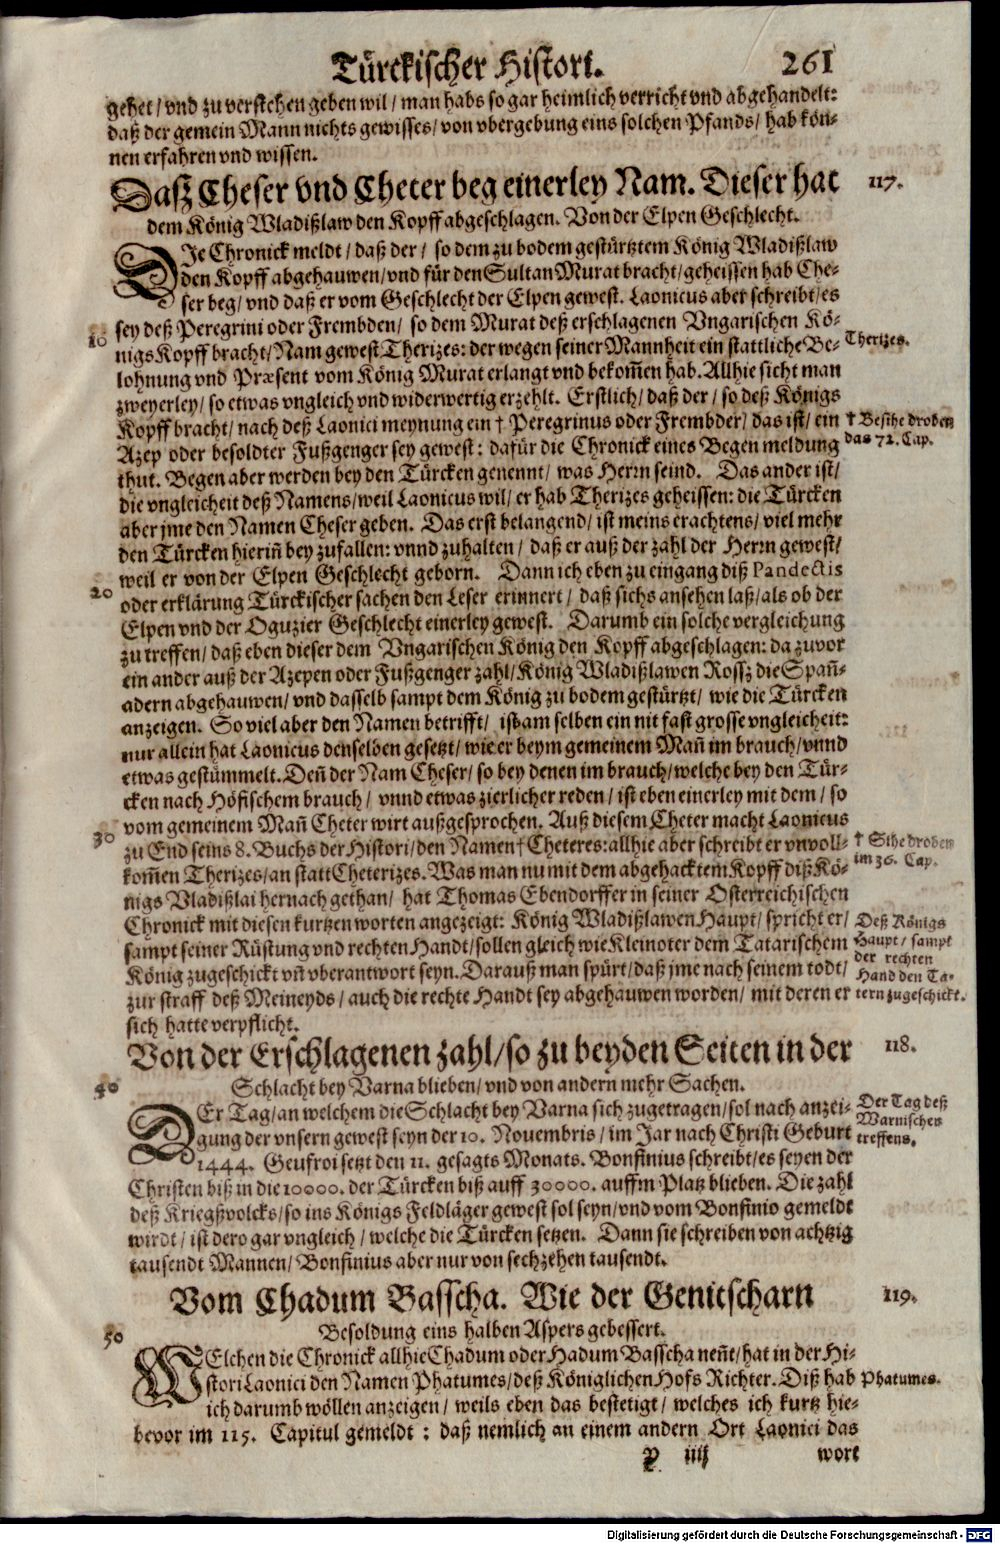 Türckischer Histori. 261
gehet / vnd zu verstehen geben wil / man habs so gar heimlich verricht vnd abgehandelt:
daß der gemein Mann nichts gewisses / von vbergebung eins solchen Pfands / hab kön-
nen erfahren vnd wissen.
Dasz Cheser vnd Cheter beg einerley Nam. Dieser hat 117.
dem König Wladißlaw den Kopff abgeschlagen. Von der Elpen Geschlecht.
DIe Chronick meldt / daß der / so dem zu bodem gestürtztem König Wladißlaw
den Kopff abgehauwen / vnd für den Sultan Murat bracht / geheissen hab Che-
ser beg / vnd daß er vom Geschlecht der Elpen gewest. Laonicus aber schreibt / es
sey deß Peregrini oder Frembden / so dem Murat deß erschlagenen Vngarischen Kö-
10 nigs Kopff bracht / Nam gewest Therizes: der wegen seiner Mannheit ein stattliche Be- Therizes.
lohnung vnd Præsent vom König Murat erlangt vnd bekom̃en hab. Allhie sicht man
zweyerley / so etwas vngleich vnd widerwertig erzehlt. Erstlich / daß der / so deß Königs
Kopff bracht / nach deß Laonici meynung ein † Peregrinus oder Frembder / das ist / ein † Besihe droben
Azep oder besoldter Fußgenger sey gewest: dafür die Chronick eines Begen meldung das 72. Cap.
thut. Begen aber werden bey den Türcken genennt / was Herrn seind. Das ander ist /
die vngleicheit deß Namens / weil Laonicus wil / er hab Therizes geheissen: die Türcken
aber jme den Namen Cheser geben. Das erst belangend / ist meins erachtens / viel mehr
den Türcken hieriñ bey zufallen: vnnd zuhalten / daß er auß der zahl der Herrn gewest /
weil er von der Elpen Geschlecht geborn. Dann ich eben zu eingang diß Pandectis
20 oder erklärung Türckischer sachen den Leser erinnert / daß sichs ansehen laß / als ob der
Elpen vnd der Oguzier Geschlecht einerley gewest. Darumb ein solche vergleichung
zu treffen / daß eben dieser dem Vngarischen König den Kopff abgeschlagen: da zuvor
ein ander auß der Azepen oder Fußgenger zahl / König Wladißlawen Rossz die Spañ-
adern abgehauwen / vnd dasselb sampt dem König zu bodem gestürtzt / wie die Türcken
anzeigen. So viel aber den Namen betrifft / ist am selben ein nit fast grosse vngleicheit:
nur allein hat Laonicus denselben gesetzt / wie er beym gemeinem Mañ im brauch / vnnd
etwas gestümmelt. Deñ der Nam Cheser / so bey denen im brauch / welche bey den Tür-
cken nach Höfischem brauch / vnnd etwas zierlicher reden / ist eben einerley mit dem / so
vom gemeinem Mañ Cheter wirt außgesprochen. Auß diesem Cheter macht Laonicus
30 zu End seins 8. Buchs der Histori / den Namen † Cheteres: allhie aber schreibt er vnvoll- † Sihe droben
kom̃en Therizes / an statt Cheterizes. Was man nu mit dem abgehacktem Kopff diß Kö- im 36. Cap.
nigs Vladißlai hernach gethan / hat Thomas Ebendorffer in seiner Osterreichischen
Chronick mit diesen kurtzen worten angezeigt: König Wladißlawen Haupt / spricht er / Deß Königs
sampt seiner Rüstung vnd rechten Handt / sollen gleich wie Kleinoter dem Tatarischem Haupt / sampt
der rechten
König zugeschickt vñ vberantwort seyn. Darauß man spürt / daß jme nach seinem todt / Hand den Ta-
zur straff deß Meineyds / auch die rechte Handt sey abgehauwen worden / mit deren er tern zugeschickt.
sich hatte verpflicht.
Von der Erschlagenen zahl / so zu beyden Seiten in der 118.
40 Schlacht bey Varna blieben / vnd von andern mehr Sachen.
DEr Tag / an welchem die Schlacht bey Varna sich zugetragen / sol nach anzei- Der Tag deß
Warnischen
gung der vnsern gewest seyn der 10. Novembris / im Jar nach Christi Geburt treffens.
1444. Geufroi setzt den 11. gesagts Monats. Bonfinius schreibt / es seyen der
Christen biß in die 10000. der Türcken biß auff 30000. auffm Platz blieben. Die zahl
deß Kriegßvolcks / so ins Königs Feldläger gewest sol seyn / vnd vom Bonfinio gemeldt
wirdt / ist dero gar vngleich / welche die Türcken setzen. Dann sie schreiben von achtzig
tausendt Mannen / Bonfinius aber nur von sechzehen tausendt.
Vom Chadum Basscha. Wie der Genitscharn 119.
50 Besoldung eins halben Aspers gebessert.
WElchen die Chronick allhie Chadum oder Hadum Basscha neñt / hat in der Hi-
stori Laonici den Namen Phatumes / deß Königlichen Hofs Richter. Diß hab Phatumes.
ich darumb wöllen anzeigen / weils eben das bestetigt / welches ich kurtz hie-
bevor im 115. Capitul gemeldt : daß nemlich an einem andern Ort Laonici das
P iiij wort
Digitalisierung gefördert durch die Deutsche Forschungsgemeinschaft - DFG